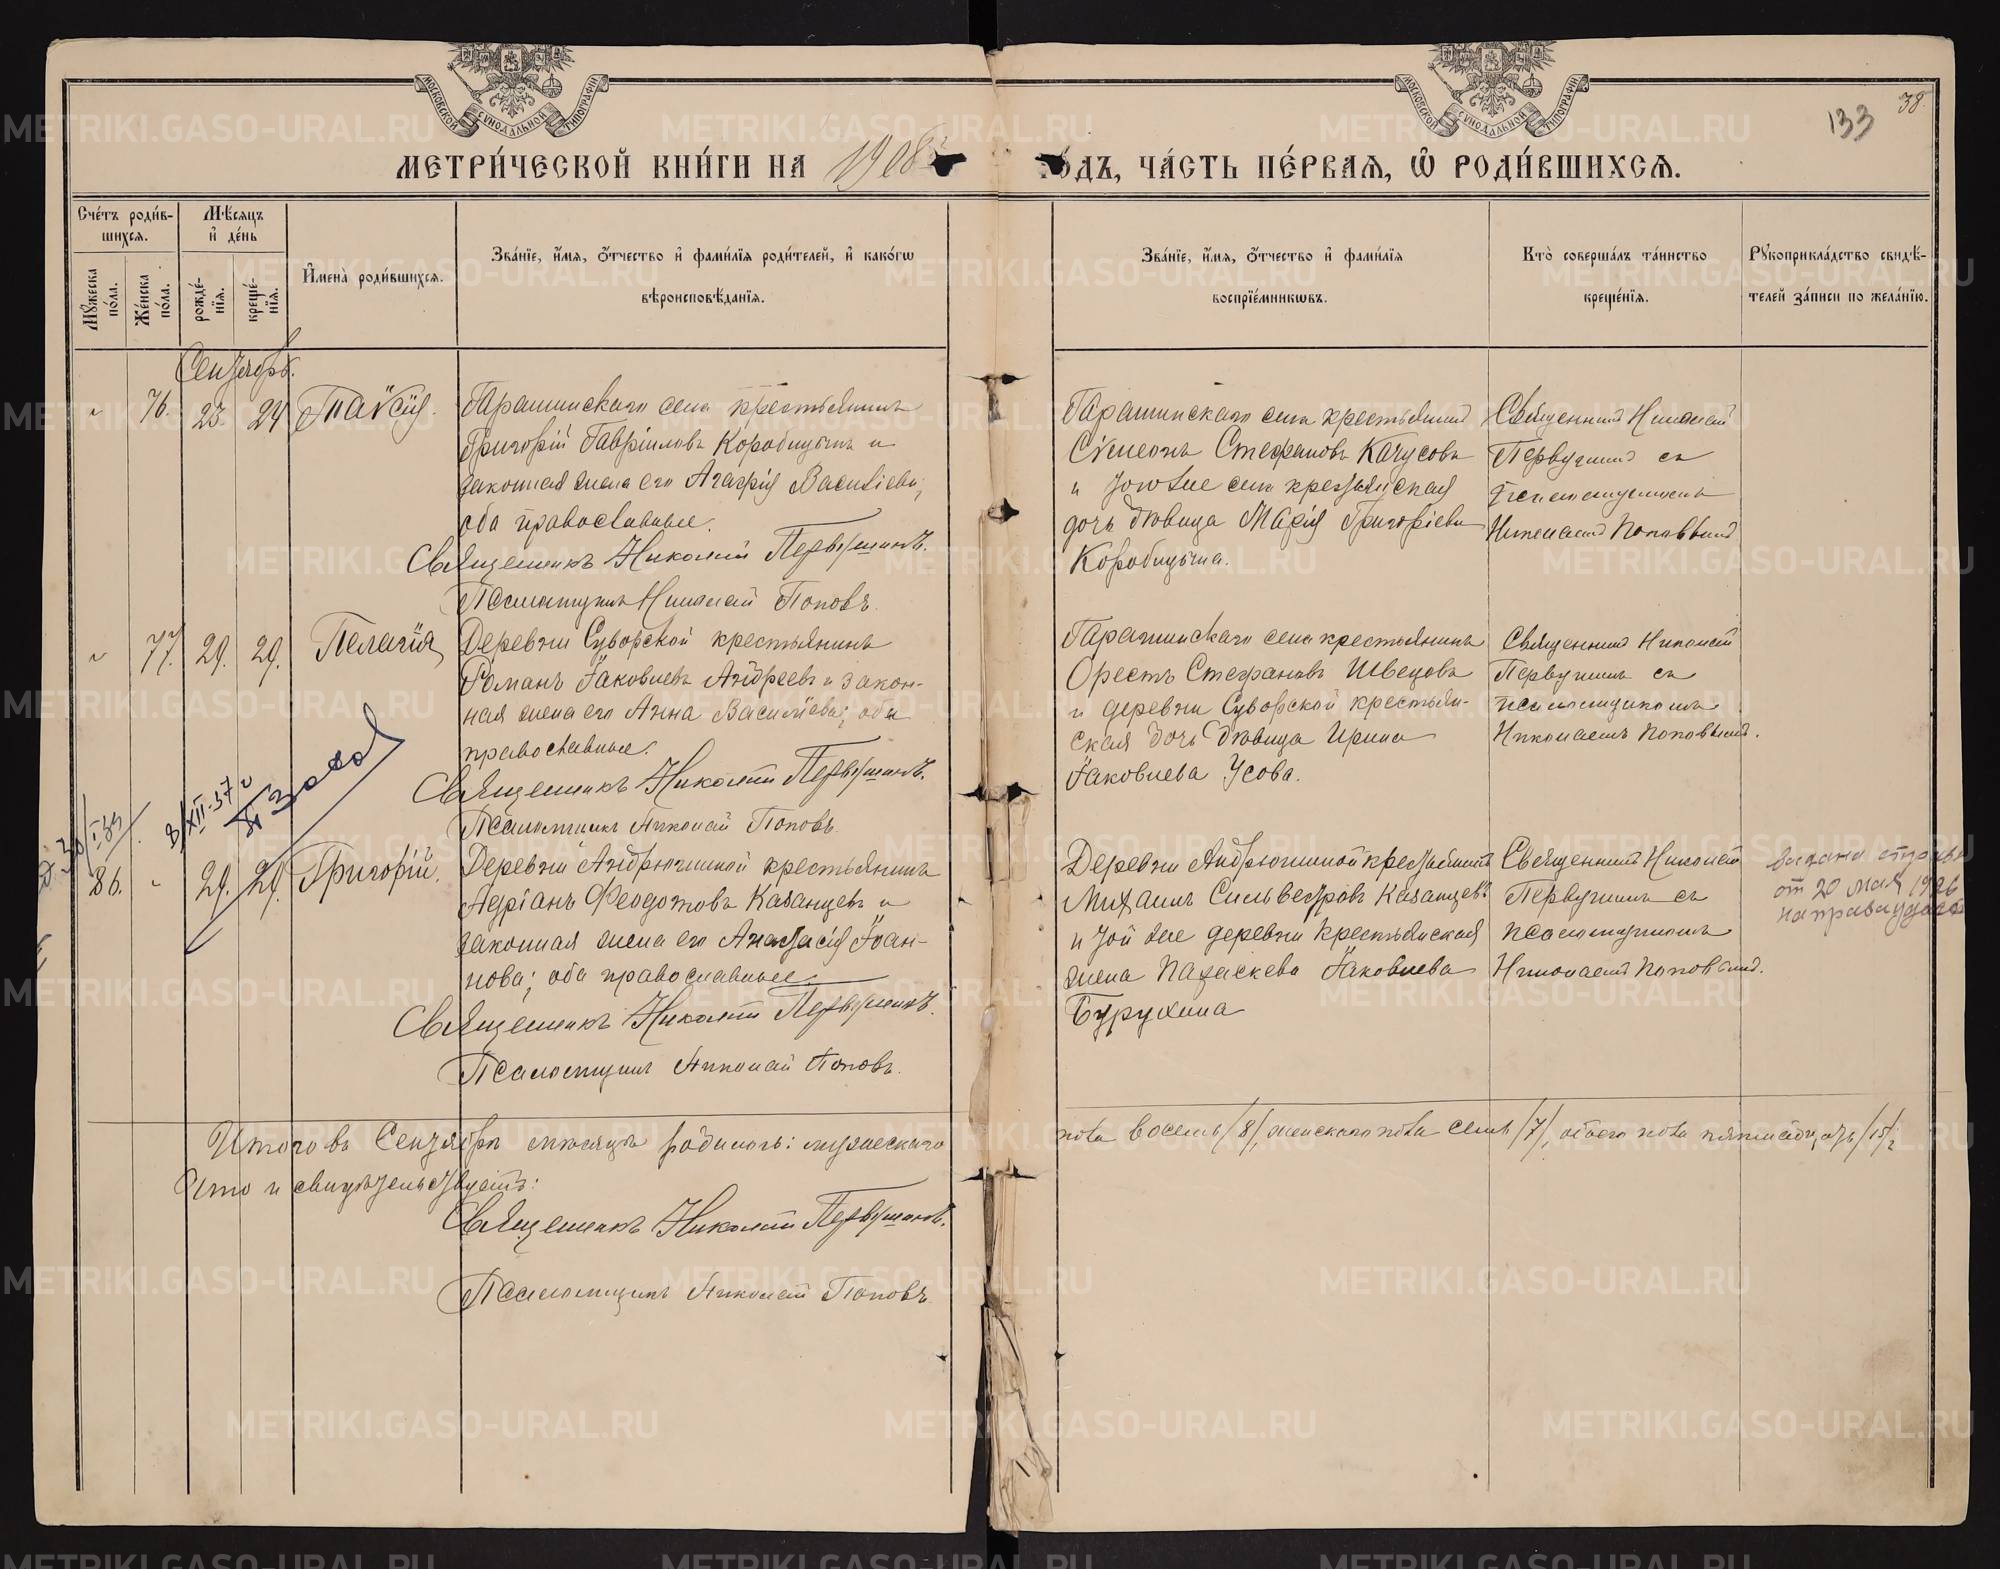 МОСКОВСКОЙ СѴНОДАЛЬНОЙ ТИПОГРАФІИ
МОСКОВСКОЙ СѴНОДАЛЬНОЙ ТИПОГРАФІИ
133
38
МЕТРИ́ЧЕСКОЙ КНИ́ГИ НА 1908
ГО́ДЪ, ЧА́СТЬ ПЕ́РВАЯ, Ѡ РОДИ́ВШИХСЯ.
Сче́тъ роди́в-
шихся.
Мѣсяцъ
и҆ де́нь
Мꙋжеска по́ла.
Же́нска по́ла.
рожде́-
нїя.
креще́-
нїя.
И҆мена̀ роди́вшихся.
Зва́нїе, и҆́мя, о҆́тчество и҆ фами́лїя роди́телей, и҆ како́гѡ
вѣроисповѣ́данїя.
Зва́нїе, и҆́мя, о҆́тчество и҆ фами́лїя
воспрїе́мникѡвъ.
Кто̀ соверша́лъ та́инство
креще́нїя.
Рꙋкоприкла́дство свидѣ́-
телей за́писи по жела́нїю.
Сентябрь.
" 76. 23. 24 Таисія.
Гарашинскаго села крестьянинъ
Григорій Гавріиловъ Коробицынъ и
законная жена его Агафія Василіева;
оба православные.
Священникъ Николай Первушинъ.
Псаломщикъ Николай Поповъ.
Гарашинскаго села крестьянинъ
Сѵмеонъ Стефановъ Качусовъ
и того же села крестьянская
дочь дѣвица Марія Григоріева
Коробицына.
Священникъ Николай
Первушинъ съ
Псаломщикомъ
Николаемъ Поповымъ
" 77. 29. 29. Пелагія
Деревни Суворской крестьянинъ
Романъ Іаковлевъ Андреевъ и закон-
ная жена его Анна Василіева; оба
православные.
Священникъ Николай Первушинъ.
Псаломщикъ Николай Поповъ.
Гарашинскаго села крестьянинъ
Орестъ Стефановъ Швецовъ
и деревни Суворской крестьян-
ская дочь дѣвица Ирина
Іаковлева Усова.
Священникъ Николай
Первушинъ съ
псаломщикомъ
Николаемъ Поповымъ.
8/XII-37 г
86. " 29. 29. Григорій.
Деревни Андрюшиной крестьянинъ
Адріанъ Ѳеодотовъ Казанцевъ и
законная жена его Анастасія Іоан-
нова; оба православные.
Священникъ Николай Первушинъ.
Псаломщикъ Николай Поповъ.
Деревни Андрюшиной крестьянинъ
Михаилъ Сильвестровъ Казанцевъ
и той же деревни крестьянская
жена Параскева Іаковлева
Бурухина
Священникъ Николай
Первушинъ съ
псаломщикомъ
Николаемъ Поповымъ.
выдана
от 20 мая 1926
Итого въ Сентябрѣ мѣсяцѣ родилось: мужескаго
пола восемь /8/, женскаго пола семь /7/, обоего пола пятнадцать /15/
Что и свидѣтельствуютъ:
Священникъ Николай Первушинъ.
Псаломщикъ Николай Поповъ.
METRIKI.GASO-URAL.RU